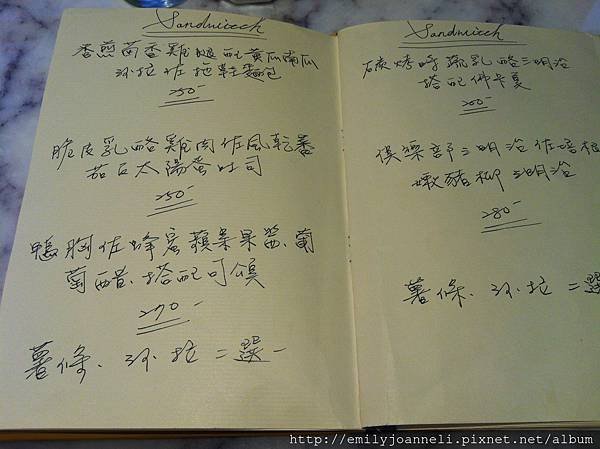 Sandwicch
香煎茴香雞腿配黃瓜南瓜
沙拉佐拖鞋麵包
250-
脆皮乳酪雞肉佐風乾蕃
茄石太陽蛋吐司
250-
鴨胸佐蜂蜜蘋果果醬、葡
萄醋、搭配可頌
270-
薯條、沙拉二選一
Sandwicch
碳烤時蔬乳酪三明治
搭配佛卡夏
200-
俱樂部三明治佐培根
嫩豬柳三明治
280-
薯條、沙拉二選
http://emilyjoanneli.pixnet.net/album